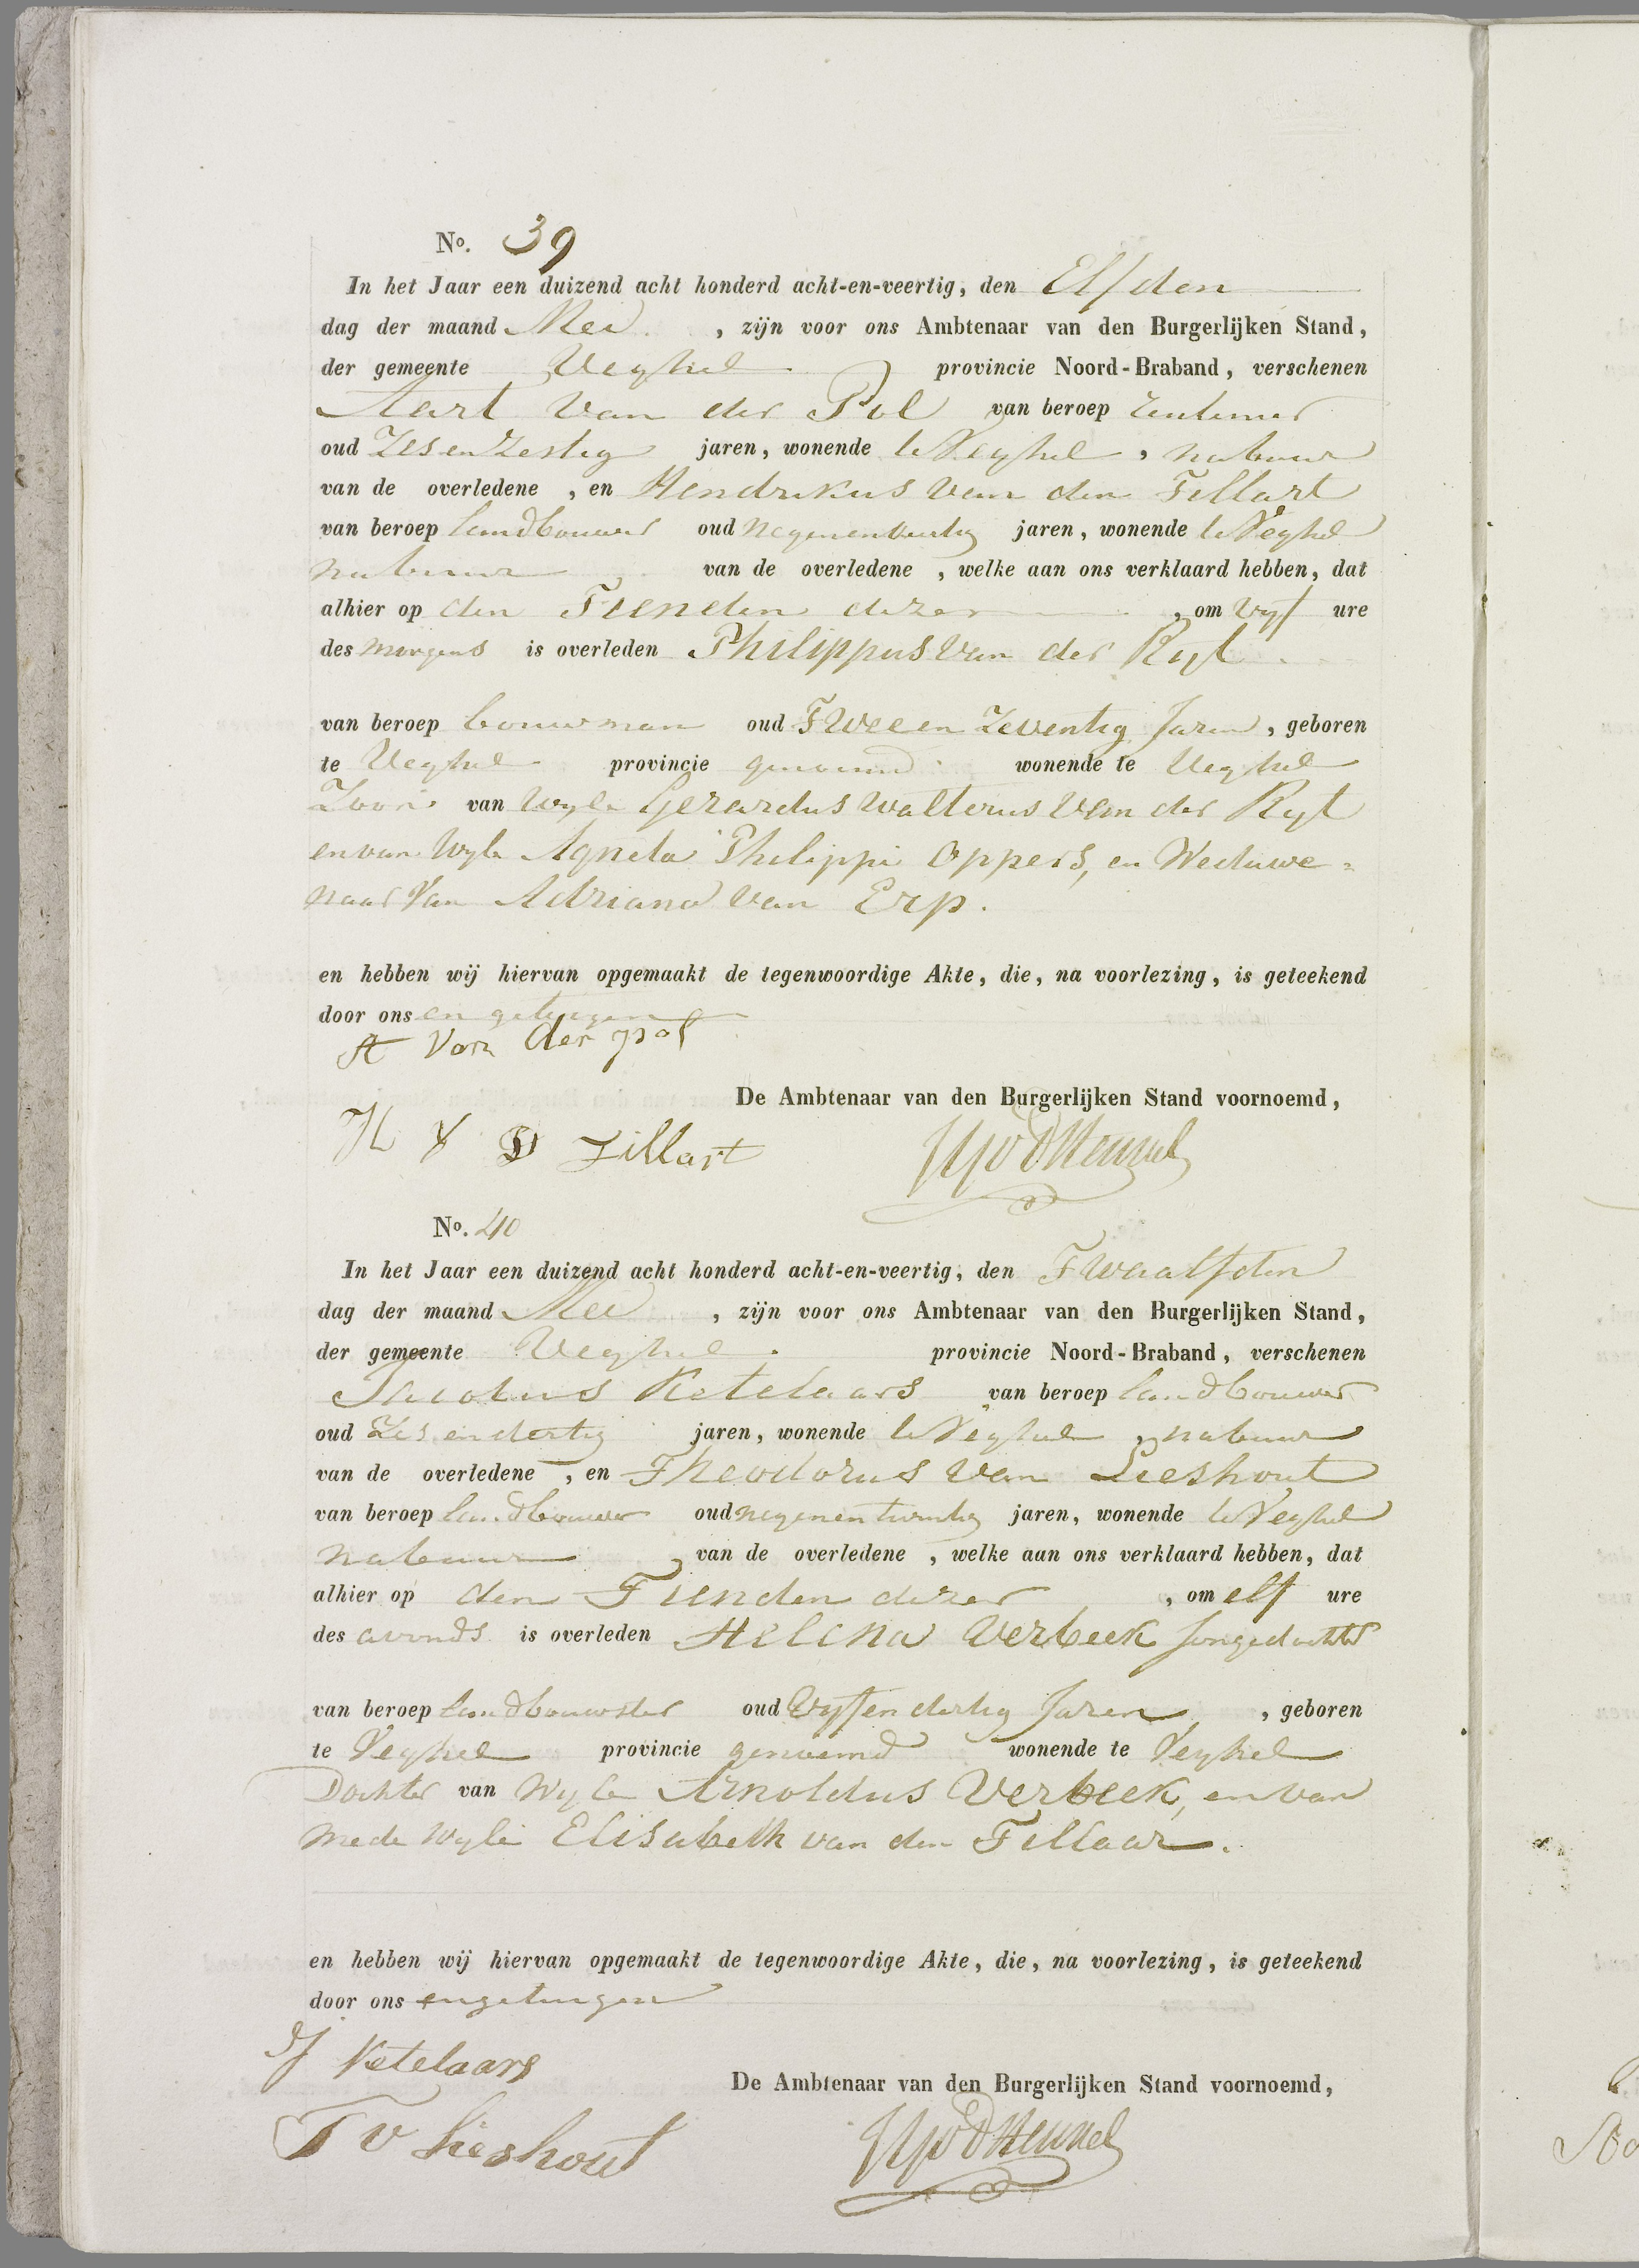 No. 39
In het Jaar een duizend acht honderd acht-en-veertig, den Elfden
dag der maand Mei, zijn voor ons Ambtenaar van den Burgerlijken Stand,
der gemeente Veghel provincie Noord-Braband, verschenen
Aart van der Pol van beroep rentenier
oud Zesenzestig jaren, wonende te Veghel, nabuur
van de overledene, en Hendrikus van den Tillart
van beroep landbouwer oud negenenveertig jaren, wonende te Veghel
nabuur van de overledene, welke aan ons verklaard hebben, dat
alhier op den Tienden dezer, om vyf ure
des morgens is overleden Philippus van der Ryt
van beroep bouwman oud Twee en Zeventig Jaren, geboren
te Veghel provincie genoemd wonende te Veghel
Zoon van wyle Gerardus Walterus van der Ryt
en van wyle Agneta Philippi Oppers, en Weduwe=
naar van Adriana van Erp.
en hebben wij hiervan opgemaakt de tegenwoordige Akte, die, na voorlezing, is geteekend
door ons en getuigen
A van der pol
De Ambtenaar van den Burgerlijken Stand voornoemd,
H V D Tillart
No. 40
In het Jaar een duizend acht honderd acht-en-veertig, den Twaalfden
dag der maand Mei, zijn voor ons Ambtenaar van den Burgerlijken Stand,
der gemeente Veghel provincie Noord-Braband, verschenen
Jacobus Ketelaars van beroep landbouwer
oud Zes en dertig jaren, wonende te Veghel, nabuur
van de overledene, en Theodorus van Lieshout
van beroep landbouwer oud negenentwintig jaren, wonende te Veghel
nabuur van de overledene, welke aan ons verklaard hebben, dat
alhier op den Tienden dezer, om elf ure
des avonds is overleden Helena Verbeek Jongedochter
van beroep landbouwster oud Vyfendertig Jaren, geboren
te Veghel provincie genoemd wonende te Veghel
Dochter van Wyle Arnoldus Verbeek, en van
mede wyle Elisabeth van den Tillaar.
en hebben wij hiervan opgemaakt de tegenwoordige Akte, die, na voorlezing, is geteekend
door ons en getuigen
J Ketelaars
De Ambtenaar van den Burgerlijken Stand voornoemd,
T v Lieshout